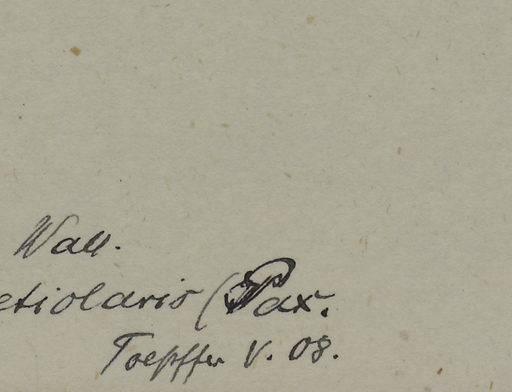 Wall.
etiolaris (Pax.
Toepffer V. 08.